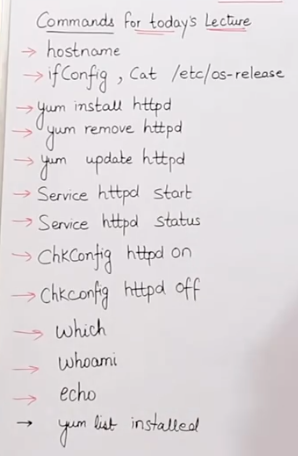 Commands for today's Lecture
→ hostname
→ ifConfig , Cat /etc/os-release
→ yum install httpd
→ yum remove httpd
→ yum update httpd
→ Service httpd Start
→ Service httpd Status
→ ChkConfig httpd on
→ Chkconfig httpd off
→ which
→ whoami
→ echo
→ yum list installed